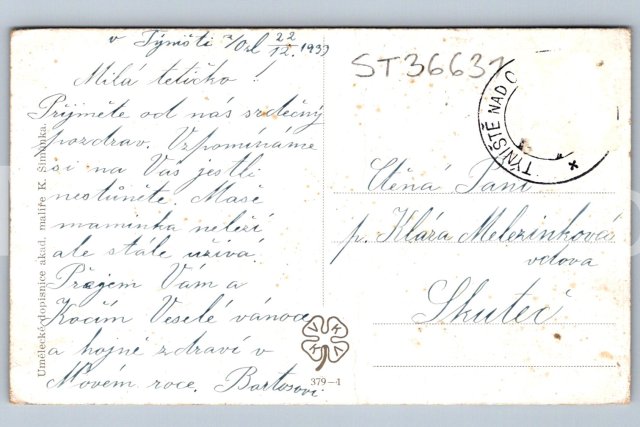 v Týništi n/Orl 22/12. 1933
Milá tetičko!
Přijměte od nás srdečný
pozdrav. Vzpomínáme
si na Vás jestli
nestůněte. Naše
maminka neleží
ale stále užívá.
Přejem Vám a
Kočím Veselé vánoce
a hojné zdraví v
Novém roce. Bartosovi
Umělecké dopisnice akad. malíře K. Šimůnka.
VKKV
379-1
ST36631
TÝNIŠTĚ NAD O
Ctěná Paní
p. Klára Melezinková
vdova
Skuteč